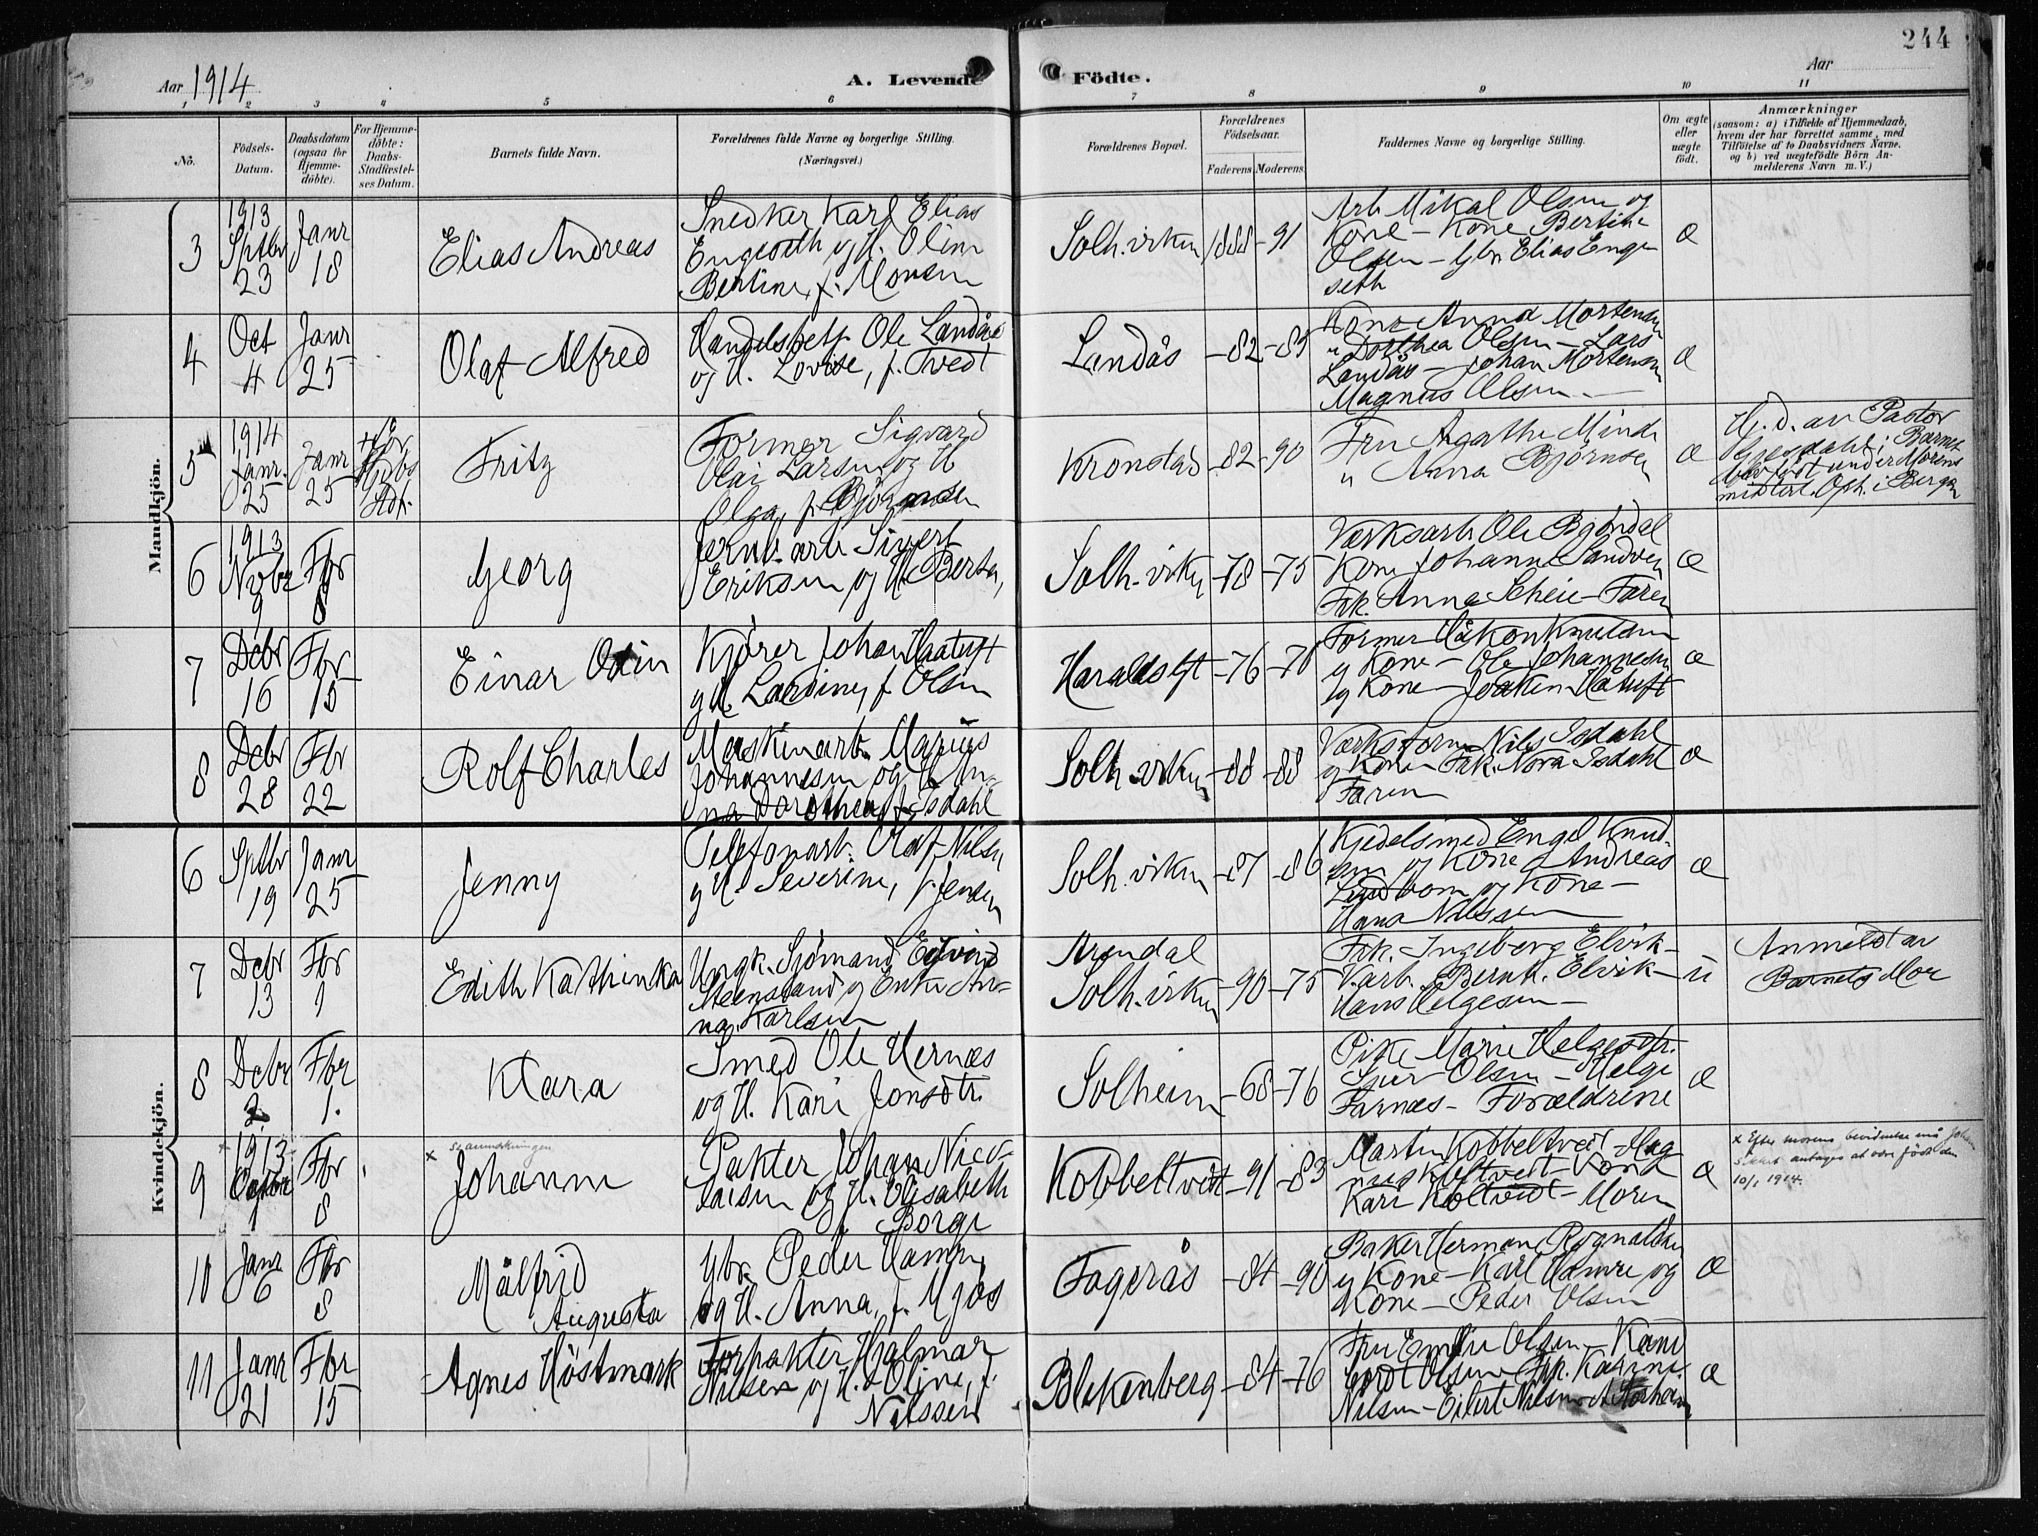 244
Aar 1914
A. Levende Födte.
Aar
1 2 3 4 5 6 7 8 9 10 11
No.
Födsels-Datum.
Daabsdatum (ogsaa for Hjemme-döbte).
For Hjemme-döbte: Daabs-Stadfæstel-ses Datum.
Barnets fulde Navn.
Forældrenes fulde Navne og borgerlige Stilling. (Næringsvei.)
Forældrenes Bopæl.
Forældrenes Födselsaar.
Faderens Moderens
Faddernes Navne og borgerlige Stilling.
Om ægte eller uægte födt.
Anmærkninger
(saasom: a) i Tilfælde af Hjemmedaab,
hvem der har forrettet samme, med
Tilföielse af to Daabsvidners Navne,
og b) ved uægtefödte Börn An-
melderens Navn m.V.)
Mandkjön.
3
1913
Sptbr
23
Janr
18
Elias Andreas
Snedker Karl Elias
Engeseth og H. Oline
Bertine, f. Monsen
Solh.viken
1888 -91
Arb Mikal Olsen og
Kone - Kone Bertine
Olsen - Gbr. Elias Enge
seth
æ
4
Oct
4
Janr
25
Olaf Alfred
Handelsbetj. Ole Landås
og H. Lovise, f. Tvedt
Landås
-82 -85
Kone Anna Mortensen
" Dorthea Olsen - Lars
Landås - Johan Mortensen
Magnus Olsen
æ
5
1914
Janr.
25
Janr
25
Fritz
Former Sigvard
Olai Larsen og H
Olga, f. Bjørnsen
Kronstad
-82 -90
Fru Agathe Minde
" Anna Bjørnsen
æ
Hj.d. av Pastor
Barnet
født under Morens
Oph. i Bergen
6
1913
Nvbr
9
Fbr
8
Georg
Jernv.arb Sivert
Eriksen og H. Berta,
Solh.viken
-78 -75
Værksarb Ole Bjøndal
Kone Johanne Sandven
Frk. Anna Scheie - Faren
æ
7
Debr
16
Fbr
15
Einar Odin
Kjører Johan Haatuft
og H. Lardine, f. Olsen
Haraldslyst
-76 -76
Former Håkon Knutsen
og Kone - Ole Johannesen
og Kone - Joakim Håtuft
æ
8
Debr
28
Fbr
22
Rolf Charles
Maskinarb. Marius
Johannesen og H. An-
na Dorothea f. Isdahl
Solh.viken
-88 -88
Værksform. Nils Isdahl
og Kone Frk. Nora Isdahl
Faren
æ
Kvindekjön.
6
Sptbr
19
Janr
25
Jenny
Telefonarb. Olaf Nilsen
og H. Severine, f. Jensen
Solh.viken
-87 -86
Kjedelsmed Engel Knud-
sen og Kone Andreas
Lindbom og Kone -
Hana Nilssen
æ
7
Debr
13
Fbr
1
Edith Kathinka
Ungk. Sjømand Edvind
Steensland og Enke An-
na Karlsen
Arendal
Solh.viken
-90 -75
Frk. Ingeborg Elvik -
V.arb. Bernh. Elvik -
Hans Helgesen -
u
Anmeldt av
Barnets Mor
8
Debr
2
Fbr
1.
Klara
Smed Ole Hernæs
og H. Kari Jonsdtr.
Solheim
-68 -76
Pike Marie Helgesdtr.
Olsen - Helge
Farnæs - Forældrene
æ
9
1913
1
Fbr
8
x se anmerkningen
Johanne
Pakter Johan Nico-
laisen og H. Elisabeth
f. Borge
Kobbeltvedt
-91 -83
Martin Kobbeltvedt - Mag-
nus Koltveit - Kone
Kari Koltveit - Moren
æ
x Efter morens bevidnelse må Johanne
sikkert antages at være født den
10/1 1914.
10
Janr
6
Fbr
8
Målfrid
Augusta
Gbr. Peder Hamre
og H. Anna, f. Mjøs
Fagerås
-84 -90
Baker Herman Rognaldsen
og Kone - Karl Hamre og
Kone - Peder Olsen
æ
11
Janr
21
Fbr
15
Agnes Höstmark
Forpakter Hjalmar
Nilsen og H. Oline, f.
Nilssen
Blekenberg
-84 -76
Fru Emilie Olsen - Kand
Olsen Frk. Karine
Nilsen - Eilert Nilsen
æ